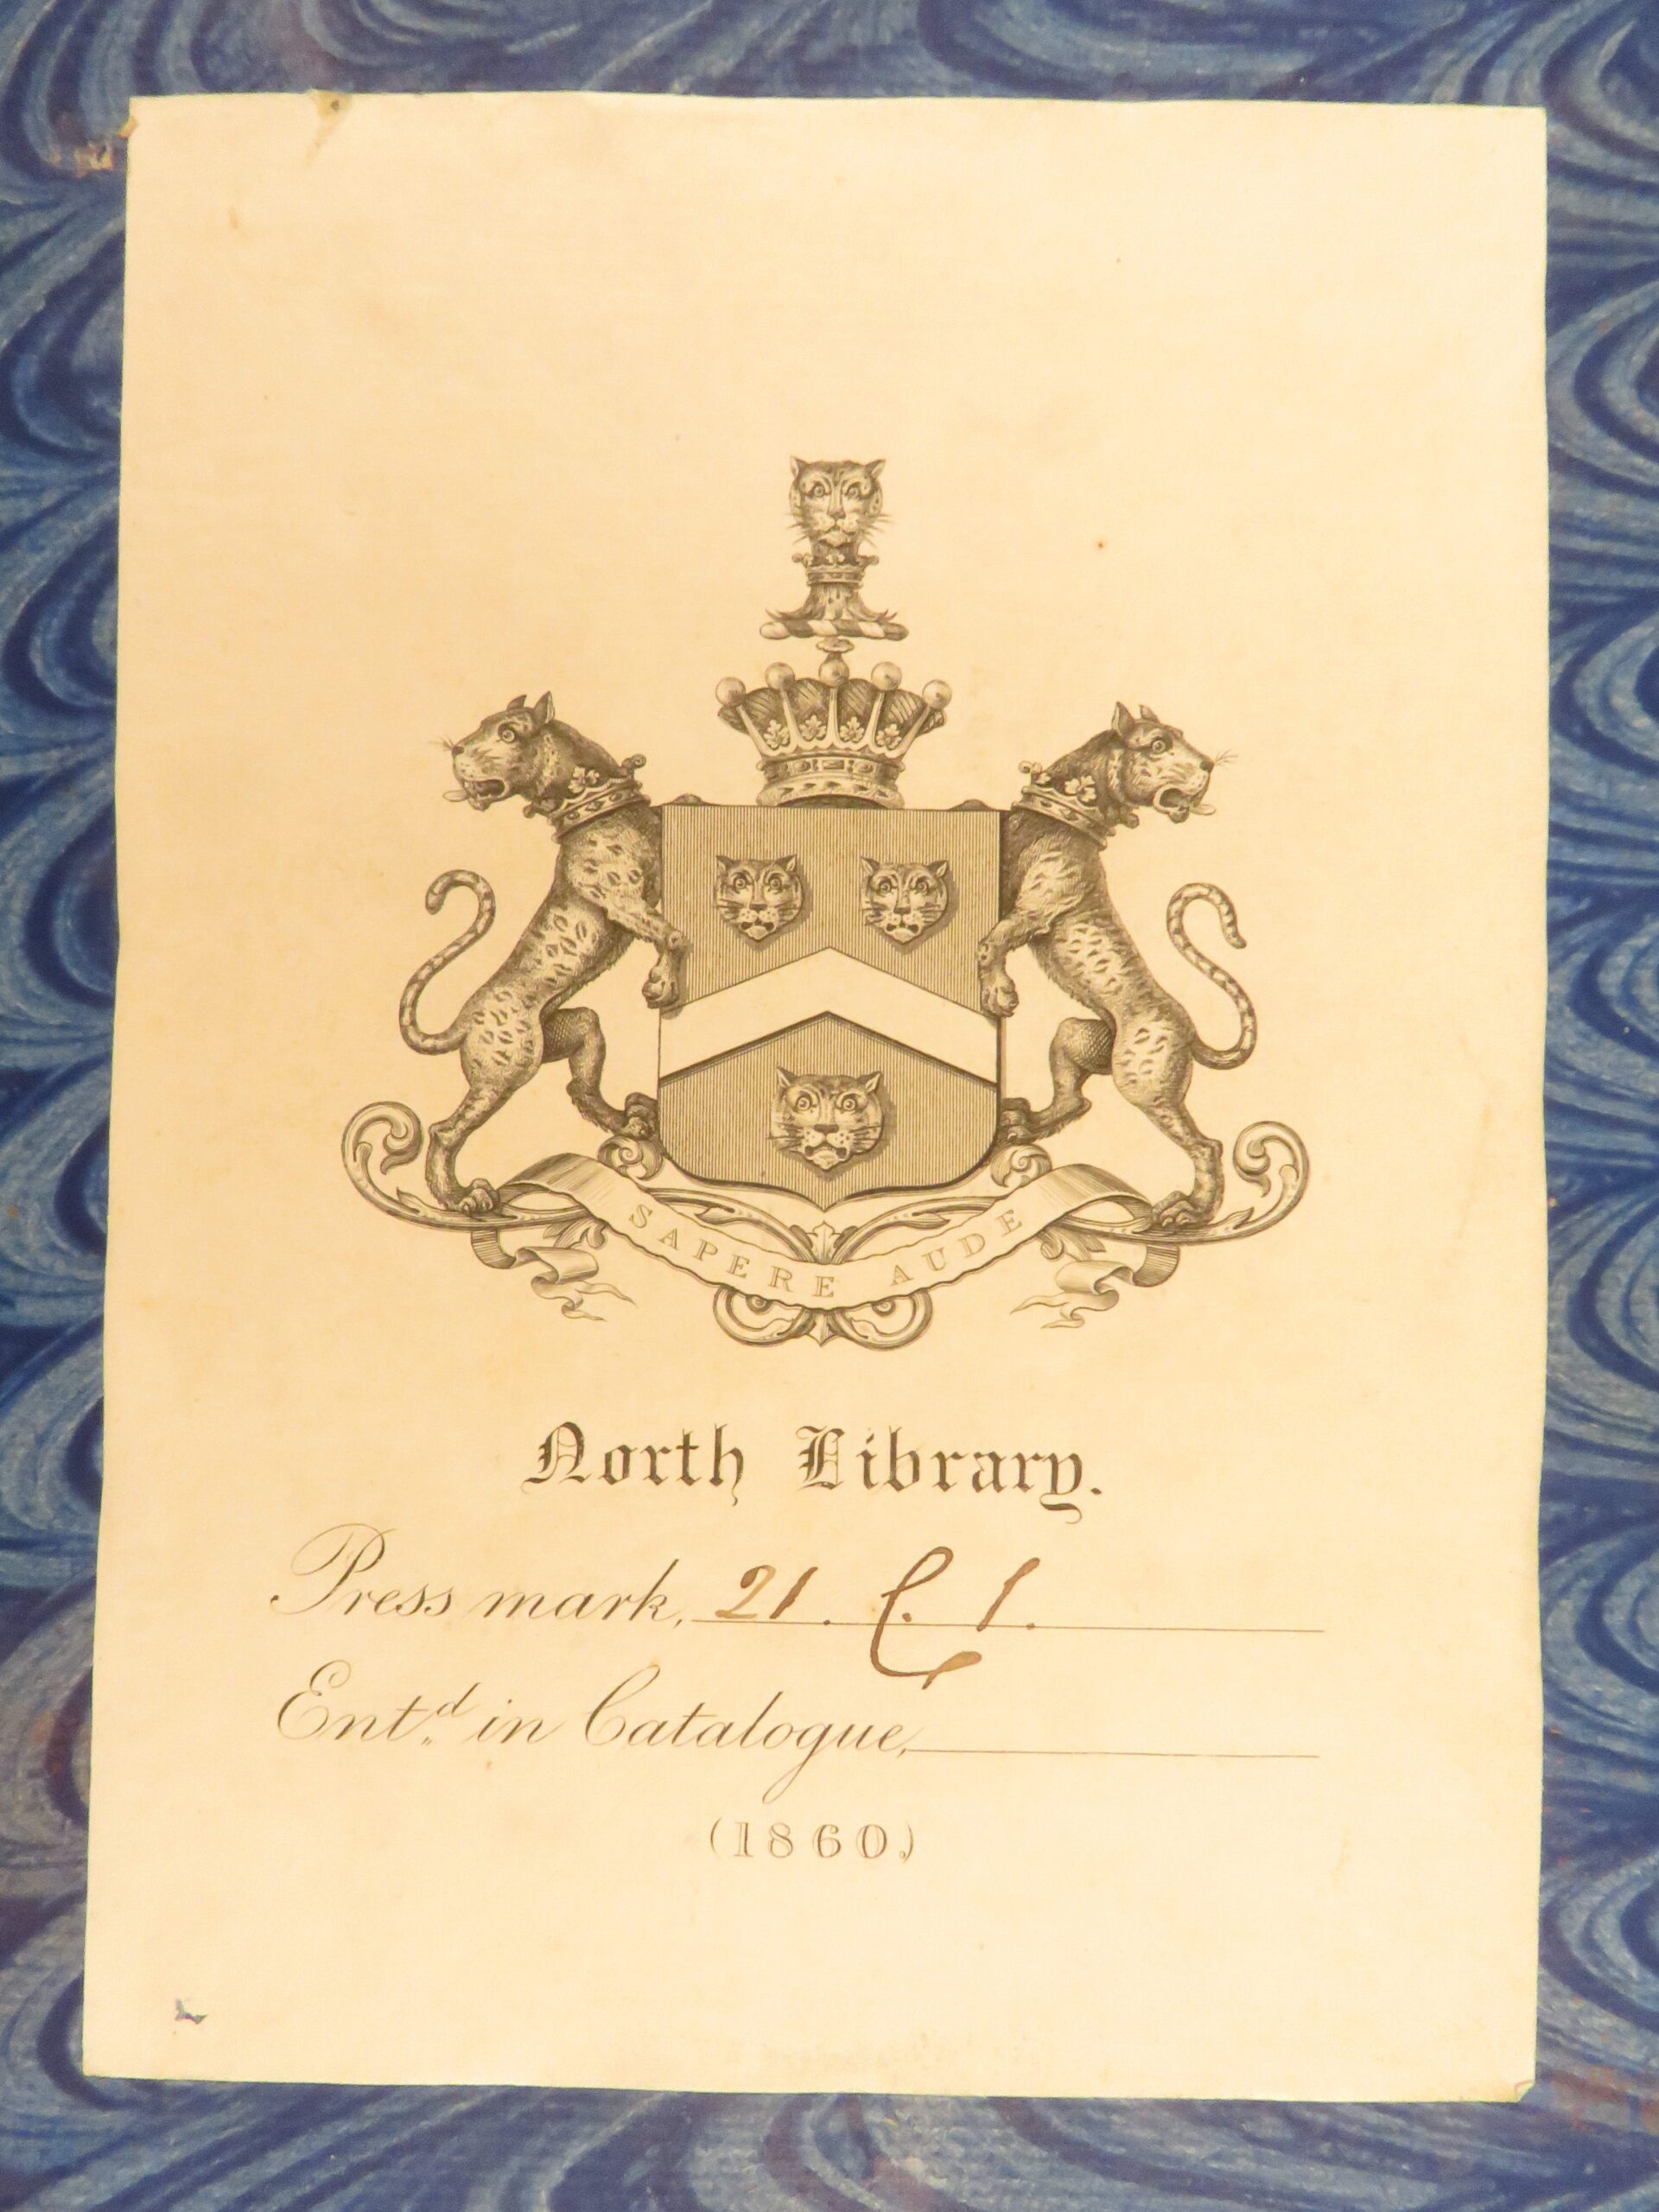 SAPERE AUDE
North Library.
Press mark, 21. C. 1.
Ent.d in Catalogue,
(1860.)